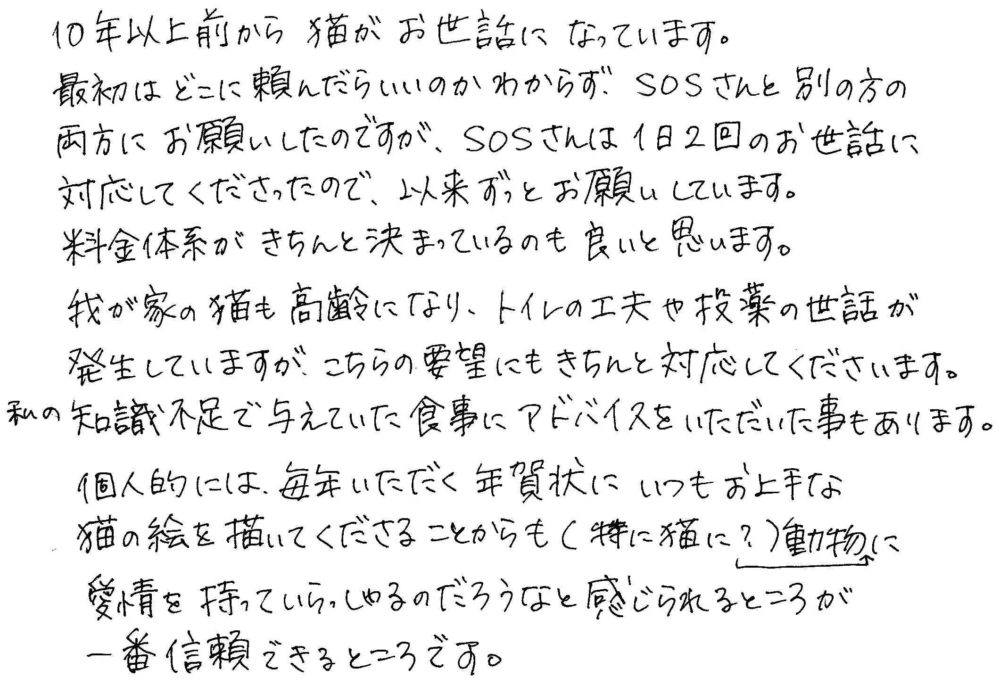 10年以上前から 猫が お世話に なっています。
最初は どこに 頼んだらいいのか わからず、SOSさんと 別の方の
両方に お願いしたのですが、SOSさんは 1日2回のお世話に
対応してくださったので、以来ずっとお願いしています。
料金体系が きちんと決まっているのも 良いと思います。
我が家の猫も高齢になり、トイレの工夫や投薬の世話が
発生していますが、こちらの要望にもきちんと対応してくださいます。
私の知識不足で与えていた食事にアドバイスをいただいた事もあります。
個人的には、毎年いただく年賀状に いつもお上手な
猫の絵を描いてくださることからも(特に猫に?)動物に
愛情を持っていらっしゃるのだろうなと感じられるところが
一番信頼できるところです。